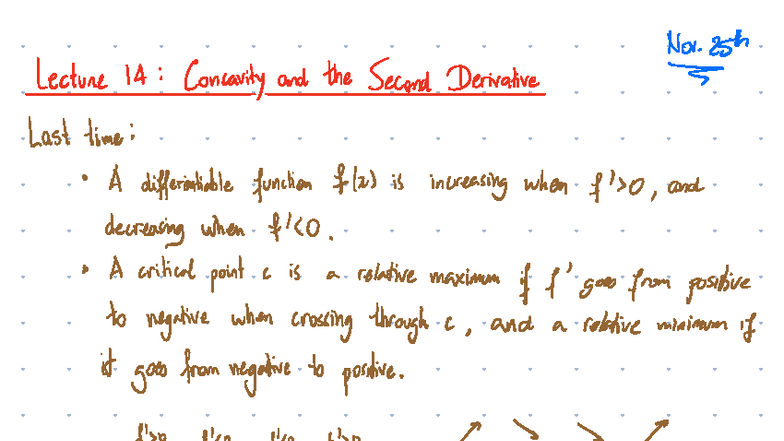 Nov. 25th
Lecture 14: Concavity and the Second Derivative
Last time:
• A differentiable function f(x) is increasing when f'>0, and
decreasing when f'<0.
• A critical point c is a relative maximum if f' goes from positive
to negative when crossing through c, and a relative minimum if
it goes from negative to positive.
f'>0 f'<0 f'<0 f'>0